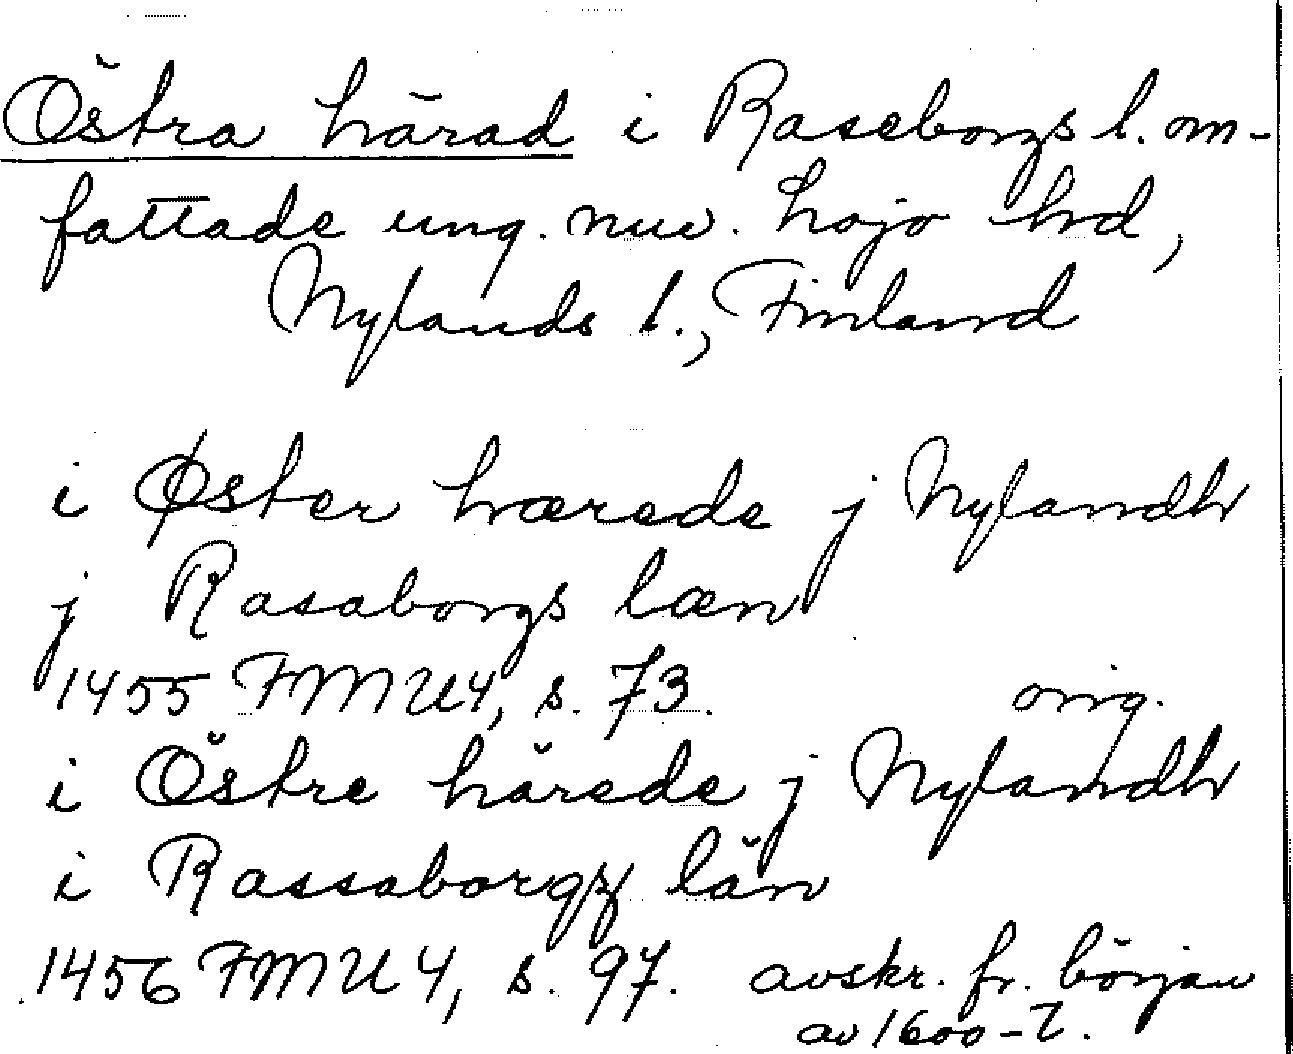 Östra härad i Raseborgs l. om-
fattade ung. nuv. Lojo hd,
Nylands l., Finland
i Øster hærede j Nylandh
j Rasaborgs læn
1455 FMU4, s. 73. orig.
i Östre härede j Nylandh
i Rassaborgx län
1456 FMU 4, s. 97. avskr. fr. början
av 1600-t.